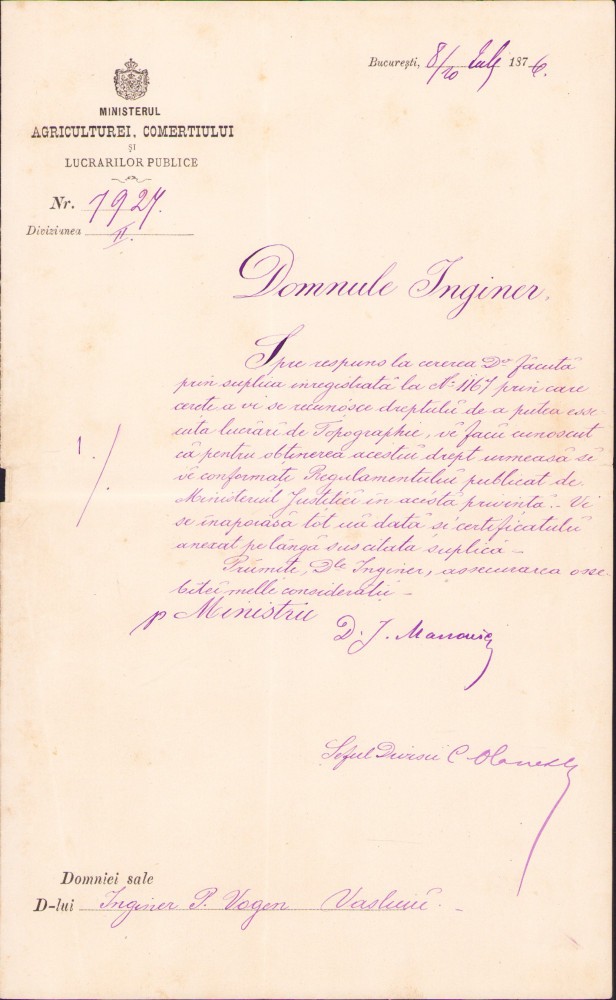 București, 8/20 Iulj 1876.
MINISTERUL
AGRICULTUREI, COMERTIULUI
ȘI
LUCRARILOR PUBLICE
Nr. 7927.
Diviziunea II.
Domnule Inginer,
Spre respuns la cererea Dv făcută
prin suplica inregistrată la No 1167 prin care
cereți a vi se recunósce dreptulŭ de a putea esse
cuta lucrări de Topographie, vĕ facŭ cunoscut
că pentru obtinerea acestuĭ drept urmeasă sĕ
vĕ conformați Regulamentuluĭ publicat de
Ministerul Justitieĭ in acéstă privintă. Vi
se inapoiasă tot uă dată si certificatulŭ
anexat pe lângă suscitata suplică.
Primite, Dle Inginer, assecurarea ose
bitei melle consideratii
p Ministru
1.
D. J.
Seful Divisii C
Domniei sale
D-lui Inginer P. Vogen Vasluiŭ.